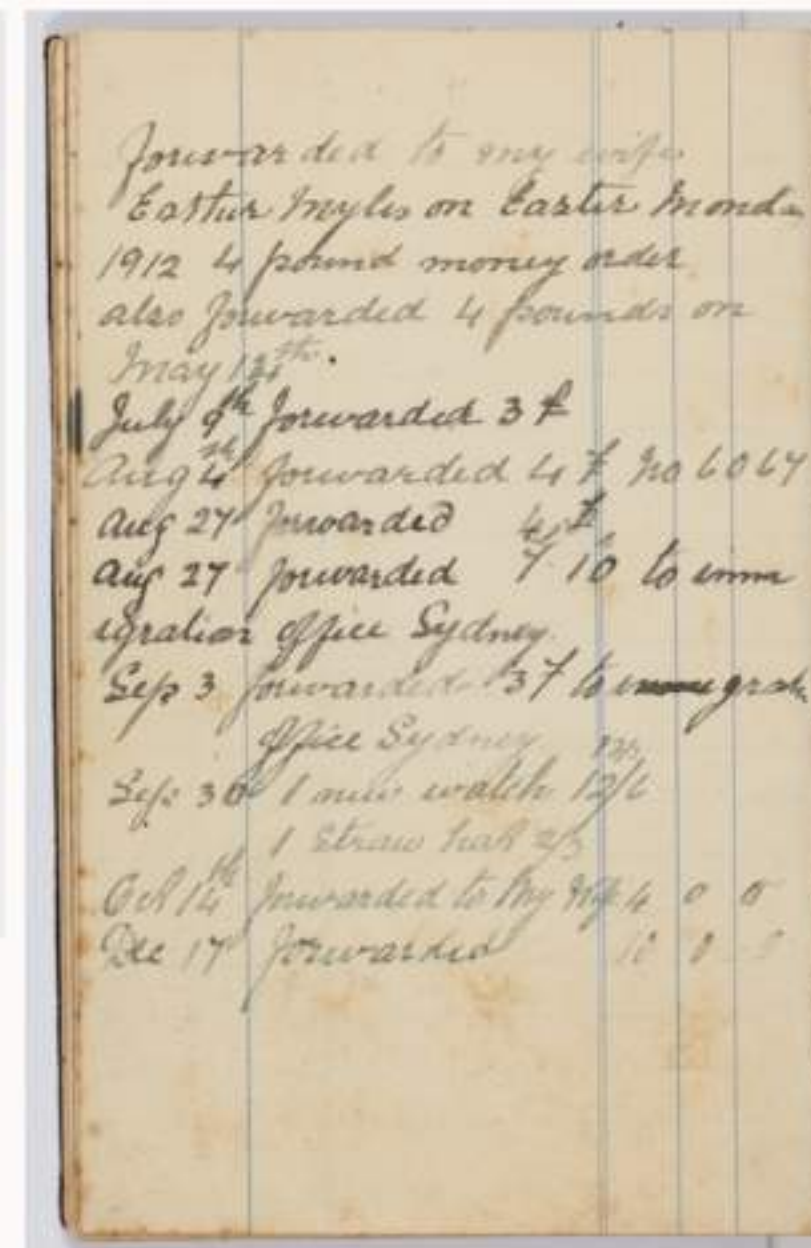 forwarded to my wife
Easthur Myles on Easter Monda
1912 4 pound money order
also forwarded 4 pounds on
May 14th.
July 9th forwarded 3 £
Aug 4th forwarded 4 £ No 6067
Aug 27 forwarded 4 £
Aug 27 forwarded 7 10 to imm
igration office Sydney.
Sep 3 forwarded 3 £ to grat
office Sydney
Sep 30 1 new watch 12/6
1 Straw hat 2/3
Oct 14th forwarded to My Wife 4 0 0
Dec 17 forwarded 10 0 0